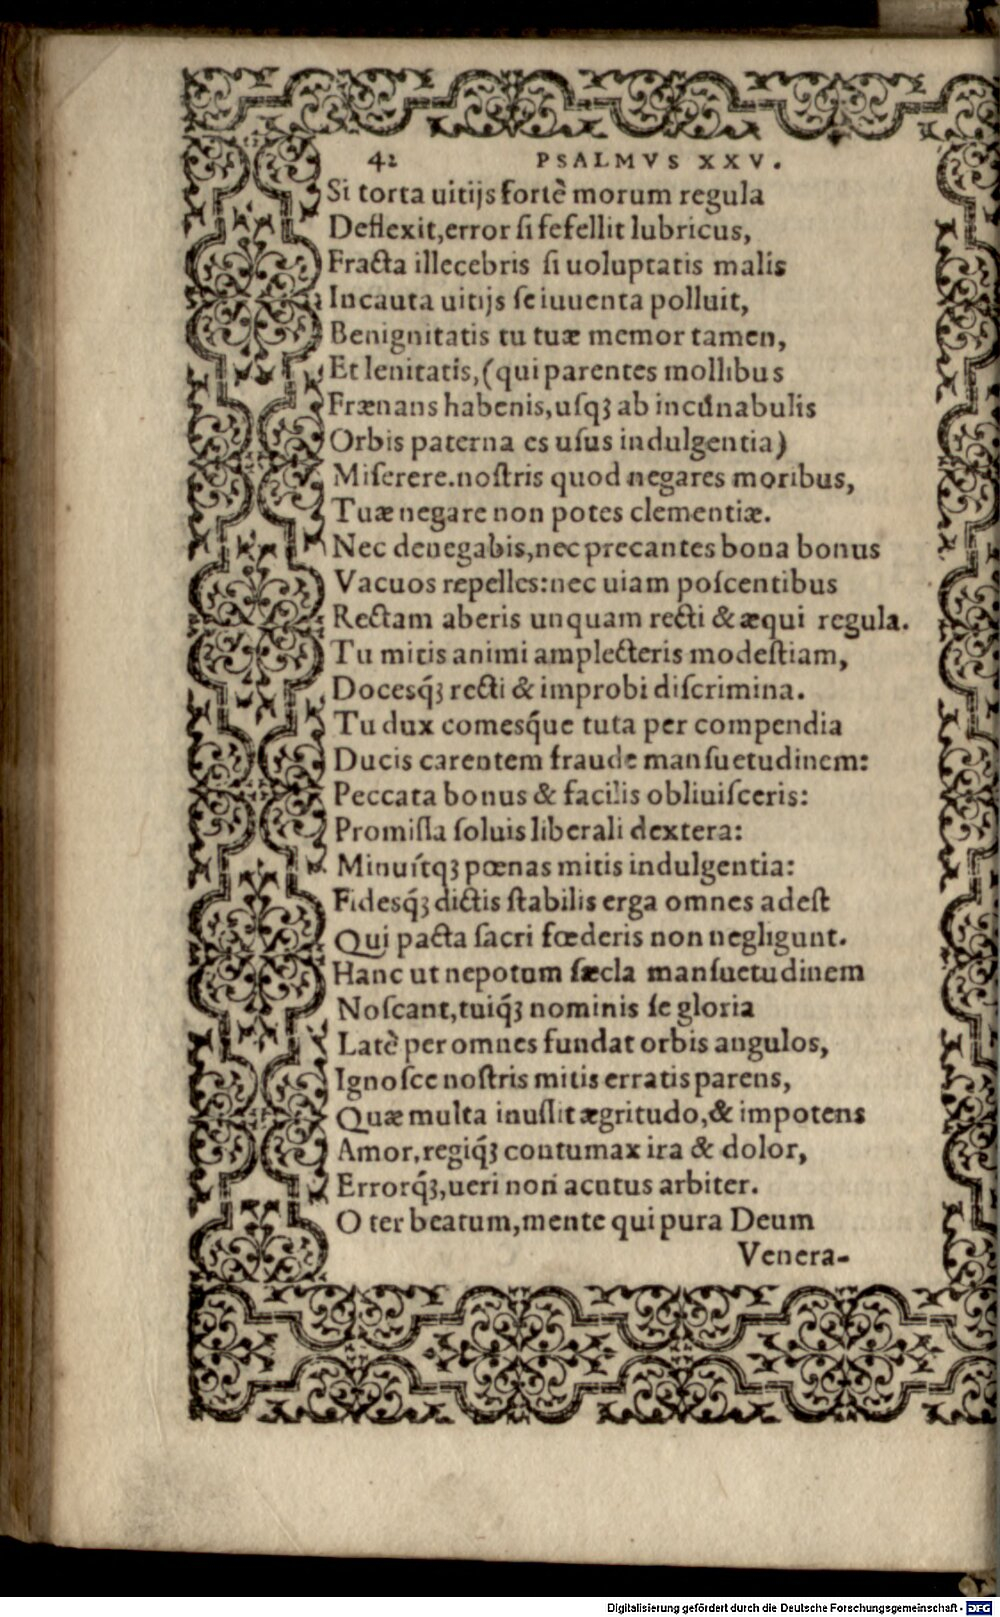 42 PSALMVS XXV.
Si torta uitijs fortè morum regula
Deflexit, error ſi fefellit lubricus,
Fracta illecebris ſi uoluptatis malis
Incauta uitijs ſe iuuenta polluit,
Benignitatis tu tuæ memor tamen,
Et lenitatis, (qui parentes mollibus
Frænans habenis, uſqꝫ ab incūnabulis
Orbis paterna es uſus indulgentia)
Miſerere. noſtris quod negares moribus,
Tuæ negare non potes clementiæ.
Nec denegabis, nec precantes bona bonus
Vacuos repelles: nec uiam poſcentibus
Rectam aberis unquam recti & æqui regula.
Tu mitis animi amplecteris modeſtiam,
Docesq́ꝫ recti & improbi diſcrimina.
Tu dux comesq́ue tuta per compendia
Ducis carentem fraude manſuetudinem:
Peccata bonus & facilis obliuiſceris:
Promiſſa ſoluis liberali dextera:
Minuítqꝫ pœnas mitis indulgentia:
Fidesq́ꝫ dictis ſtabilis erga omnes adeſt
Qui pacta ſacri fœderis non negligunt.
Hanc ut nepotum ſæcla manſuetudinem
Noſcant, tuiq́ꝫ nominis ſe gloria
Latè per omnes fundat orbis angulos,
Ignoſce noſtris mitis erratis parens,
Quæ multa inuſſit ægritudo, & impotens
Amor, regiq́ꝫ contumax ira & dolor,
Errorq́ꝫ, ueri non acutus arbiter.
O ter beatum, mente qui pura Deum
Venera-
Digitalisierung gefördert durch die Deutsche Forschungsgemeinschaft - DFG